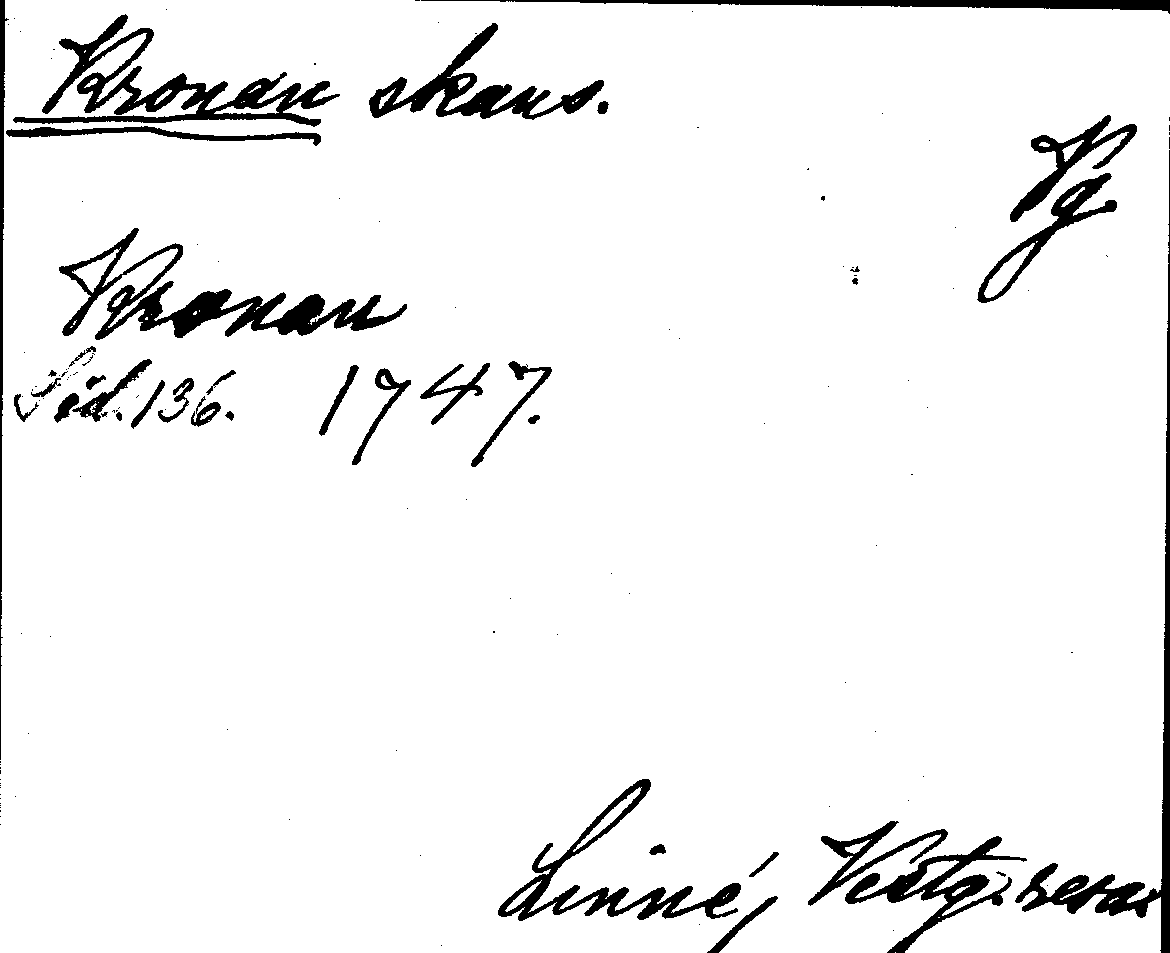 Kronan skans.
Vg.
Kronan
Sid. 136. 1747.
Linné, Västg. resa